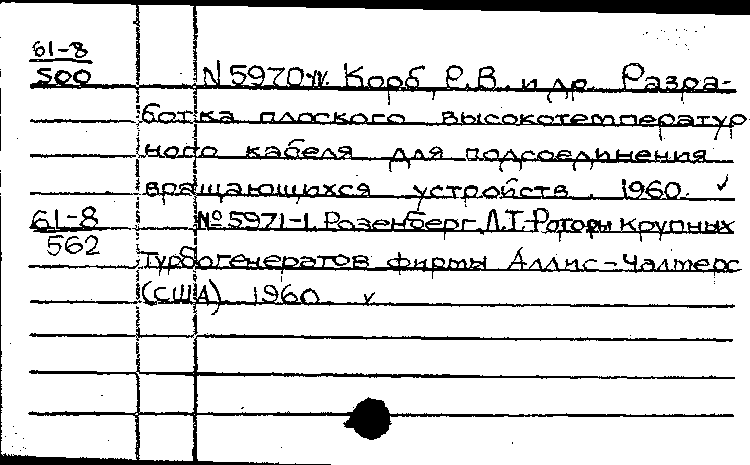 61-8
500 N 5970-IV. Корб, Р.В. и др. Разра-
ботка плоского высокотемператур
ного кабеля для подсоединения
вращающихся устройств. 1960. ✓
61-8 № 5971-1. Розенберг, Л.Т. Роторы крупных
562
турбогенератов фирмы Аллис-Чалмерс
(США) 1960 ✓